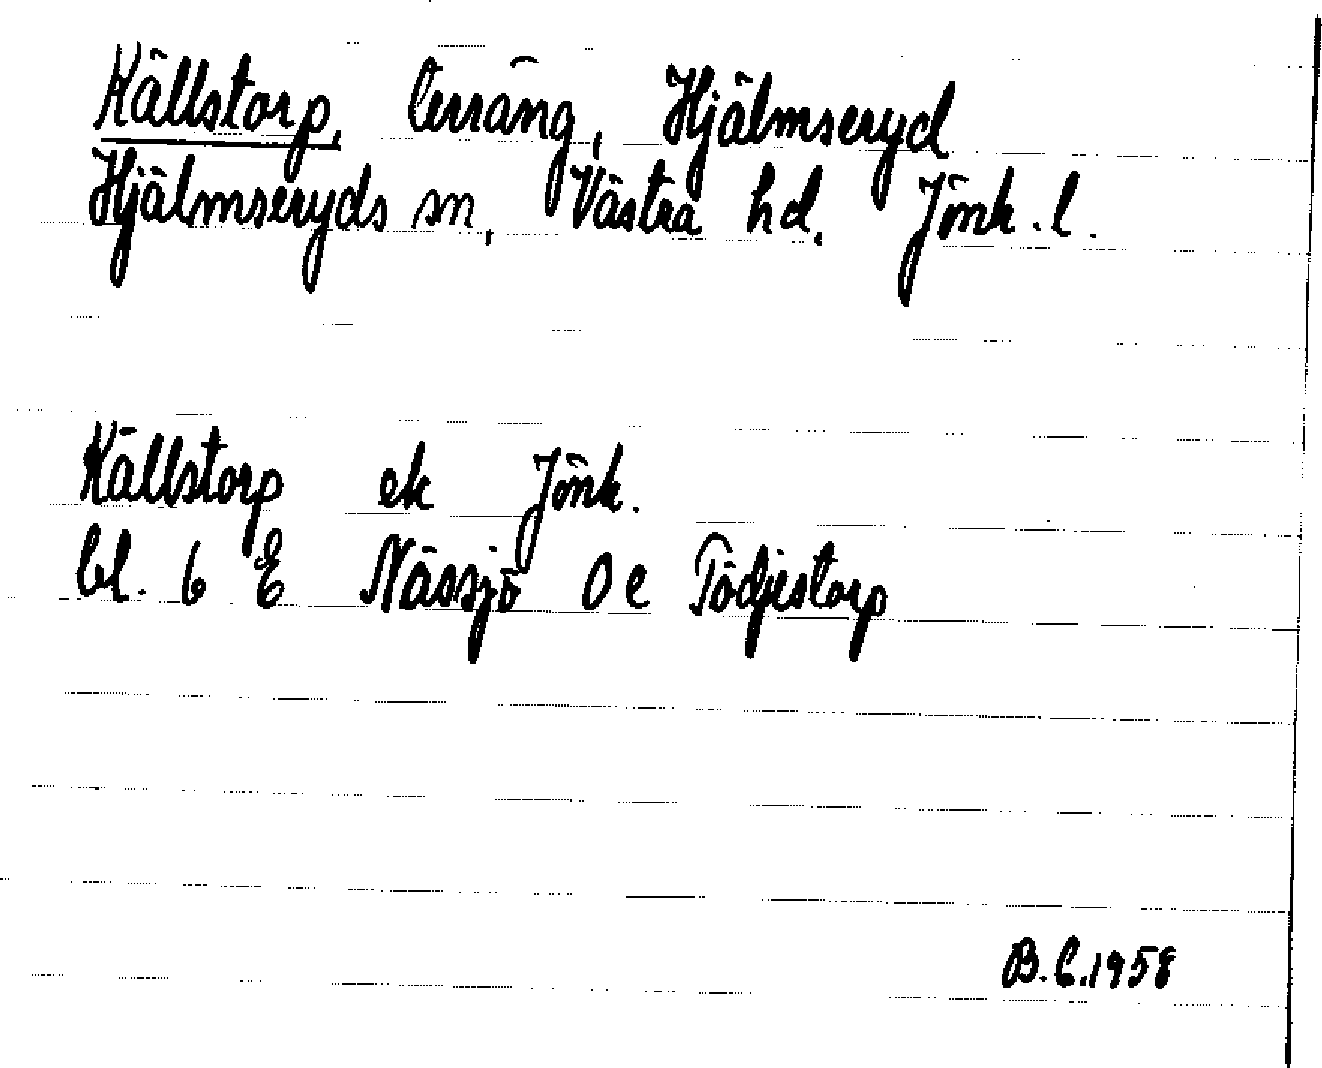 Källstorp, terräng, Hjälmseryd
Hjälmseryds sn, Västra hd. Jönk. l.
Källstorp ek Jönk.
bl. 6 E Nässjö 0 e Tödjestorp
B.C. 1958